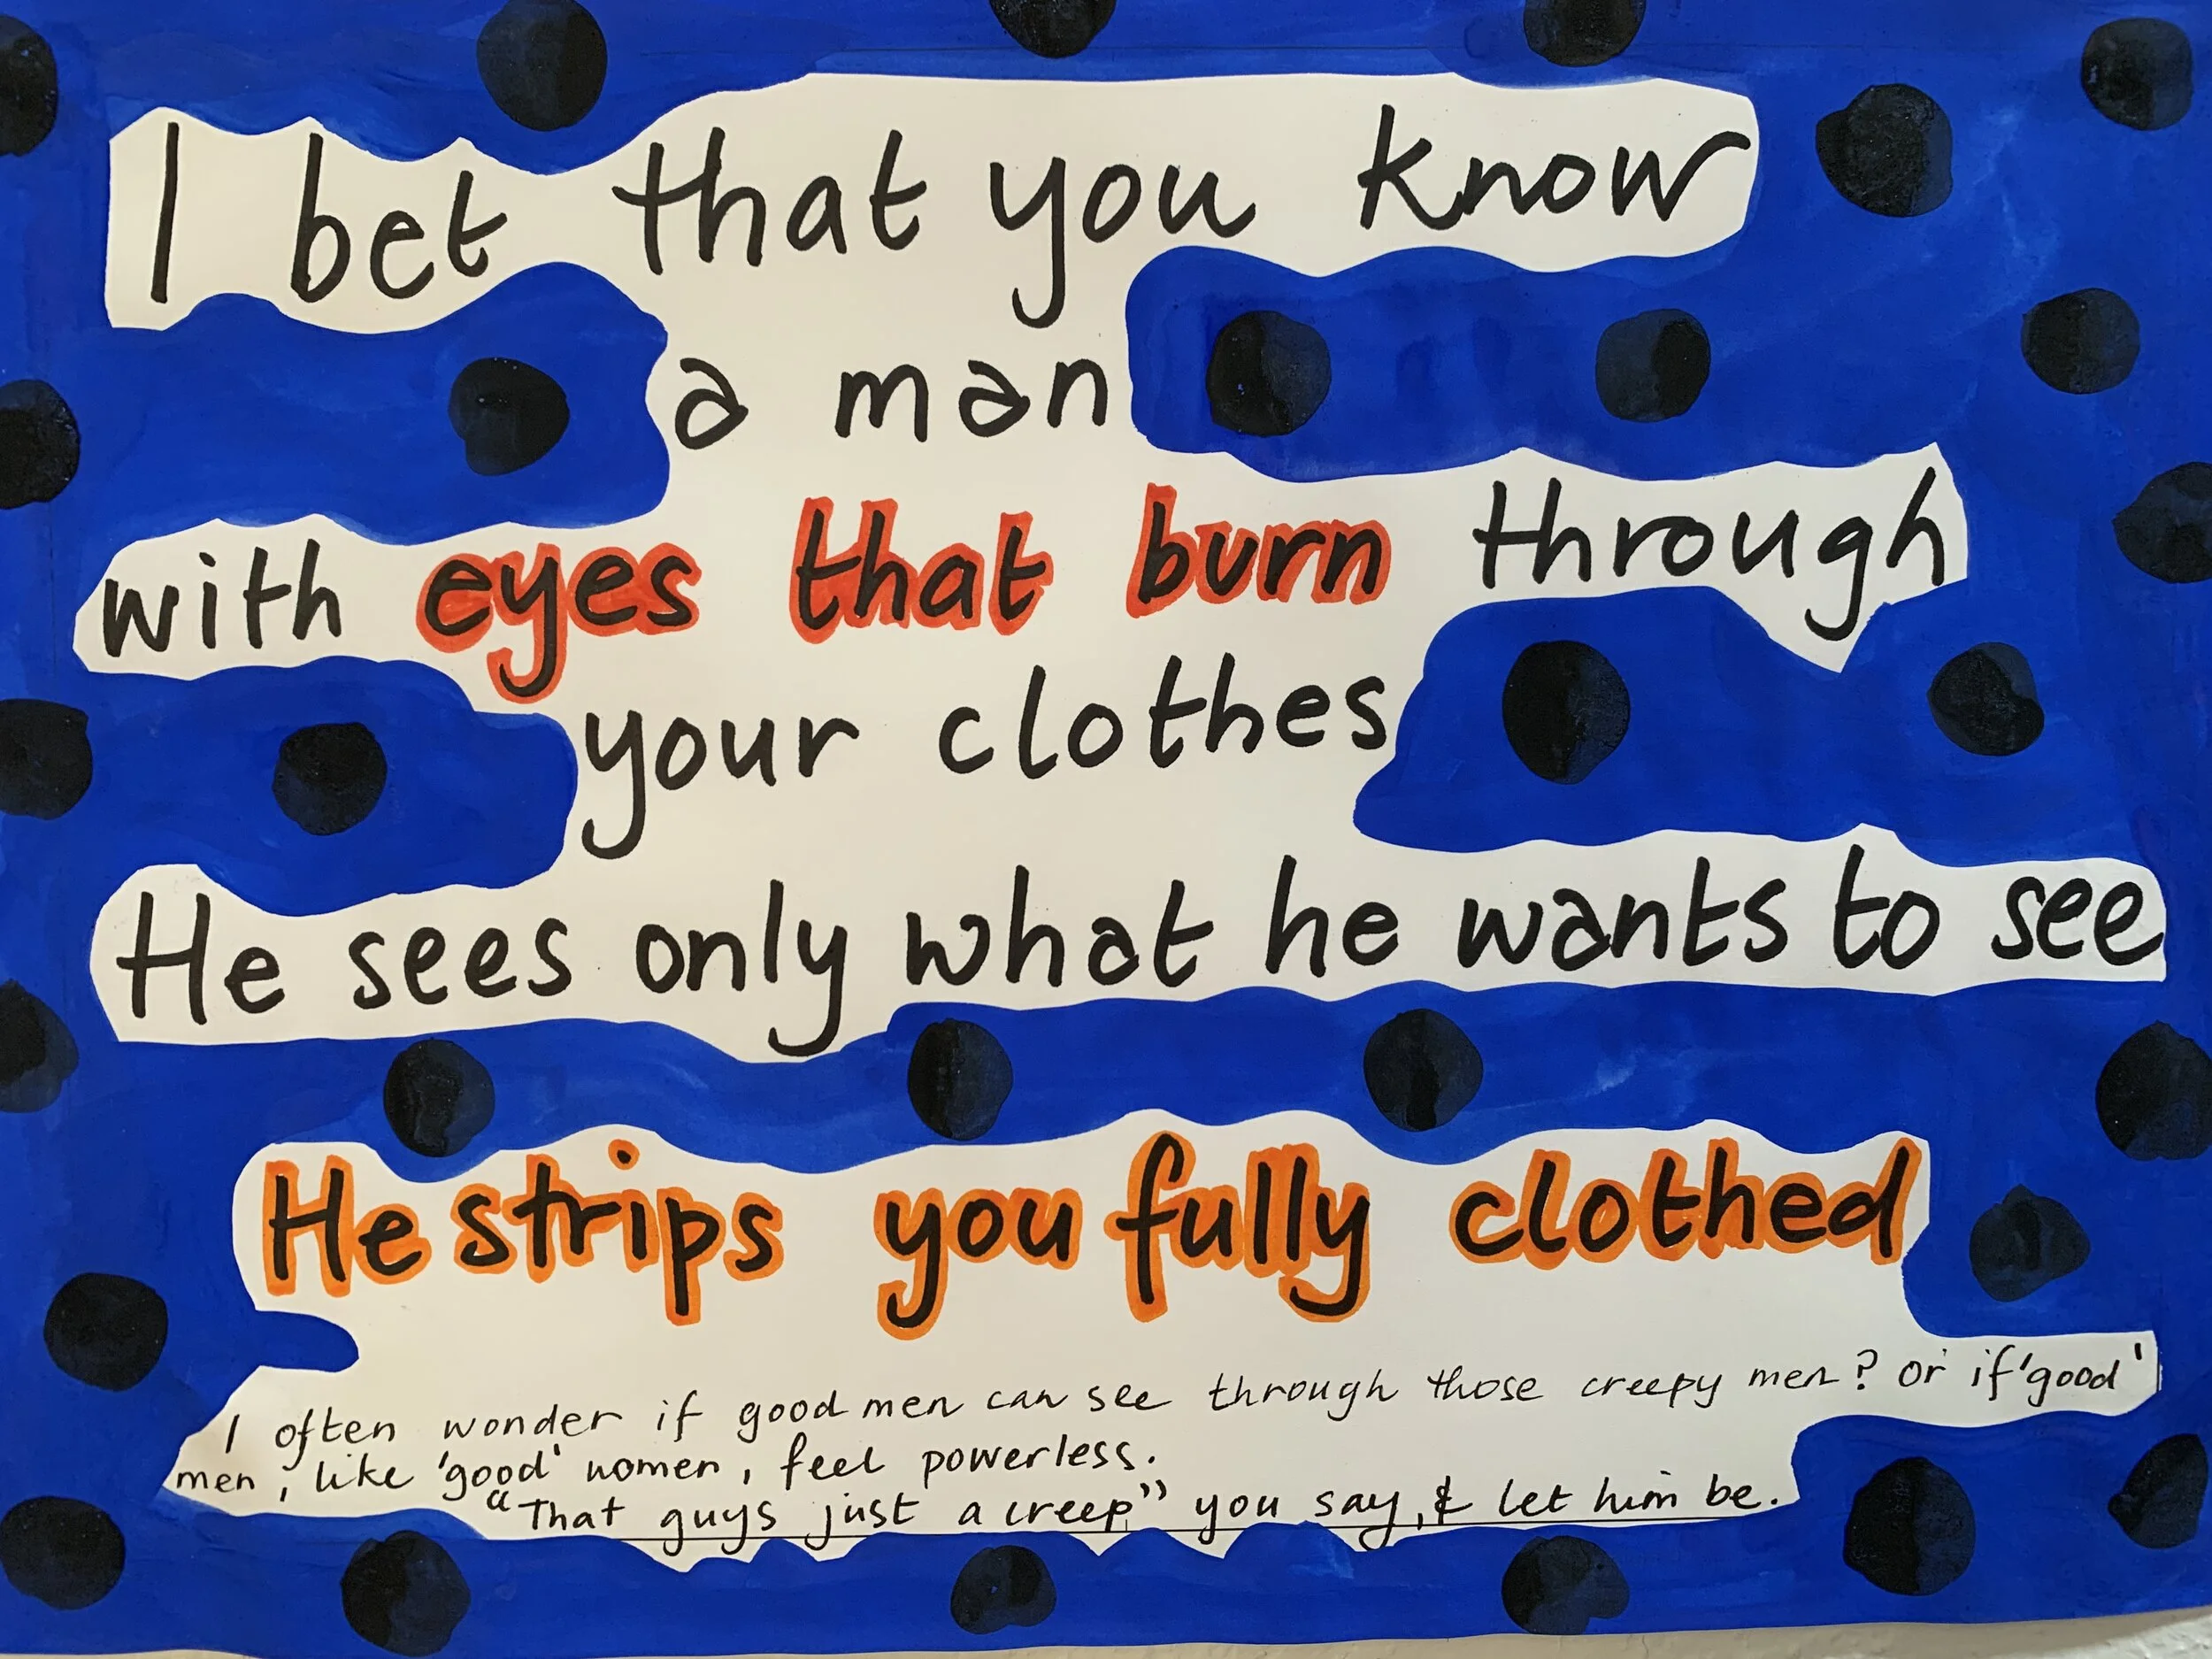 I bet that you know
a man
with eyes that burn through
your clothes
He sees only what he wants to see
He strips you fully clothed
I often wonder if good men can see through those creepy men? or if 'good'
men, like 'good' women, feel powerless.
"That guys just a creep" you say, & let him be.